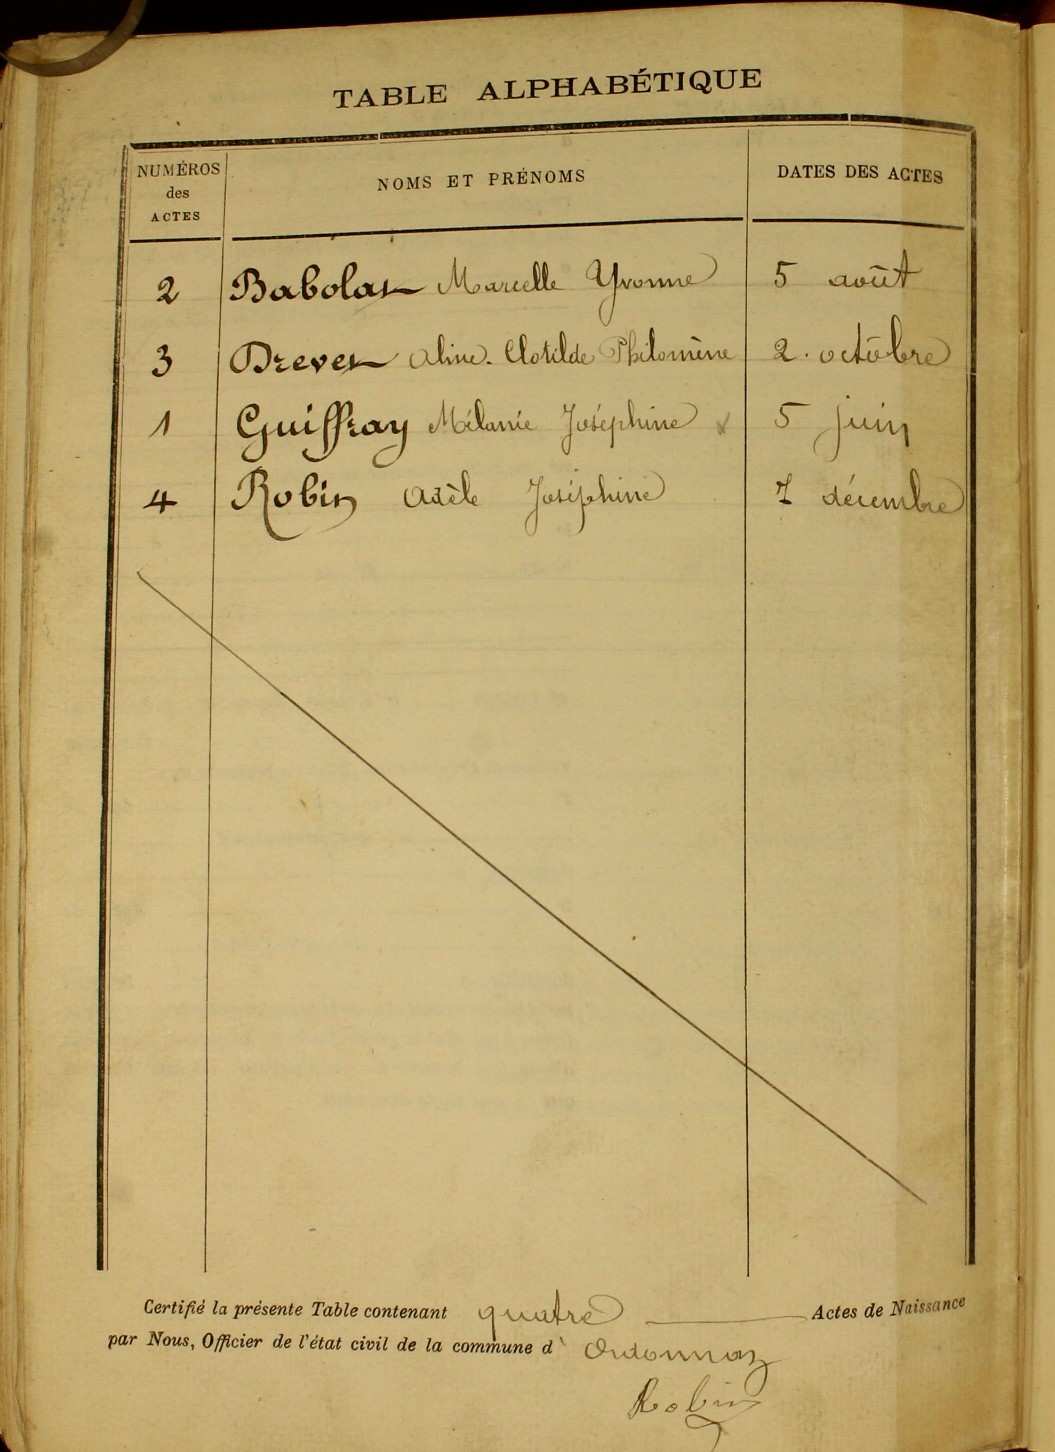 TABLE ALPHABÉTIQUE
NUMÉROS des ACTES NOMS ET PRÉNOMS DATES DES ACTES
2 Babolat Marcelle Yvonne 5 août
3 Drevet Aline Clotilde Philomène 2 octobre
1 Guiffray Mélanie Joséphine 5 juin
4 Robin Adèle Joséphine 7 décembre
Certifié la présente Table contenant quatre Actes de Naissance
par Nous, Officier de l'état civil de la commune d' Ordonnaz
Robin